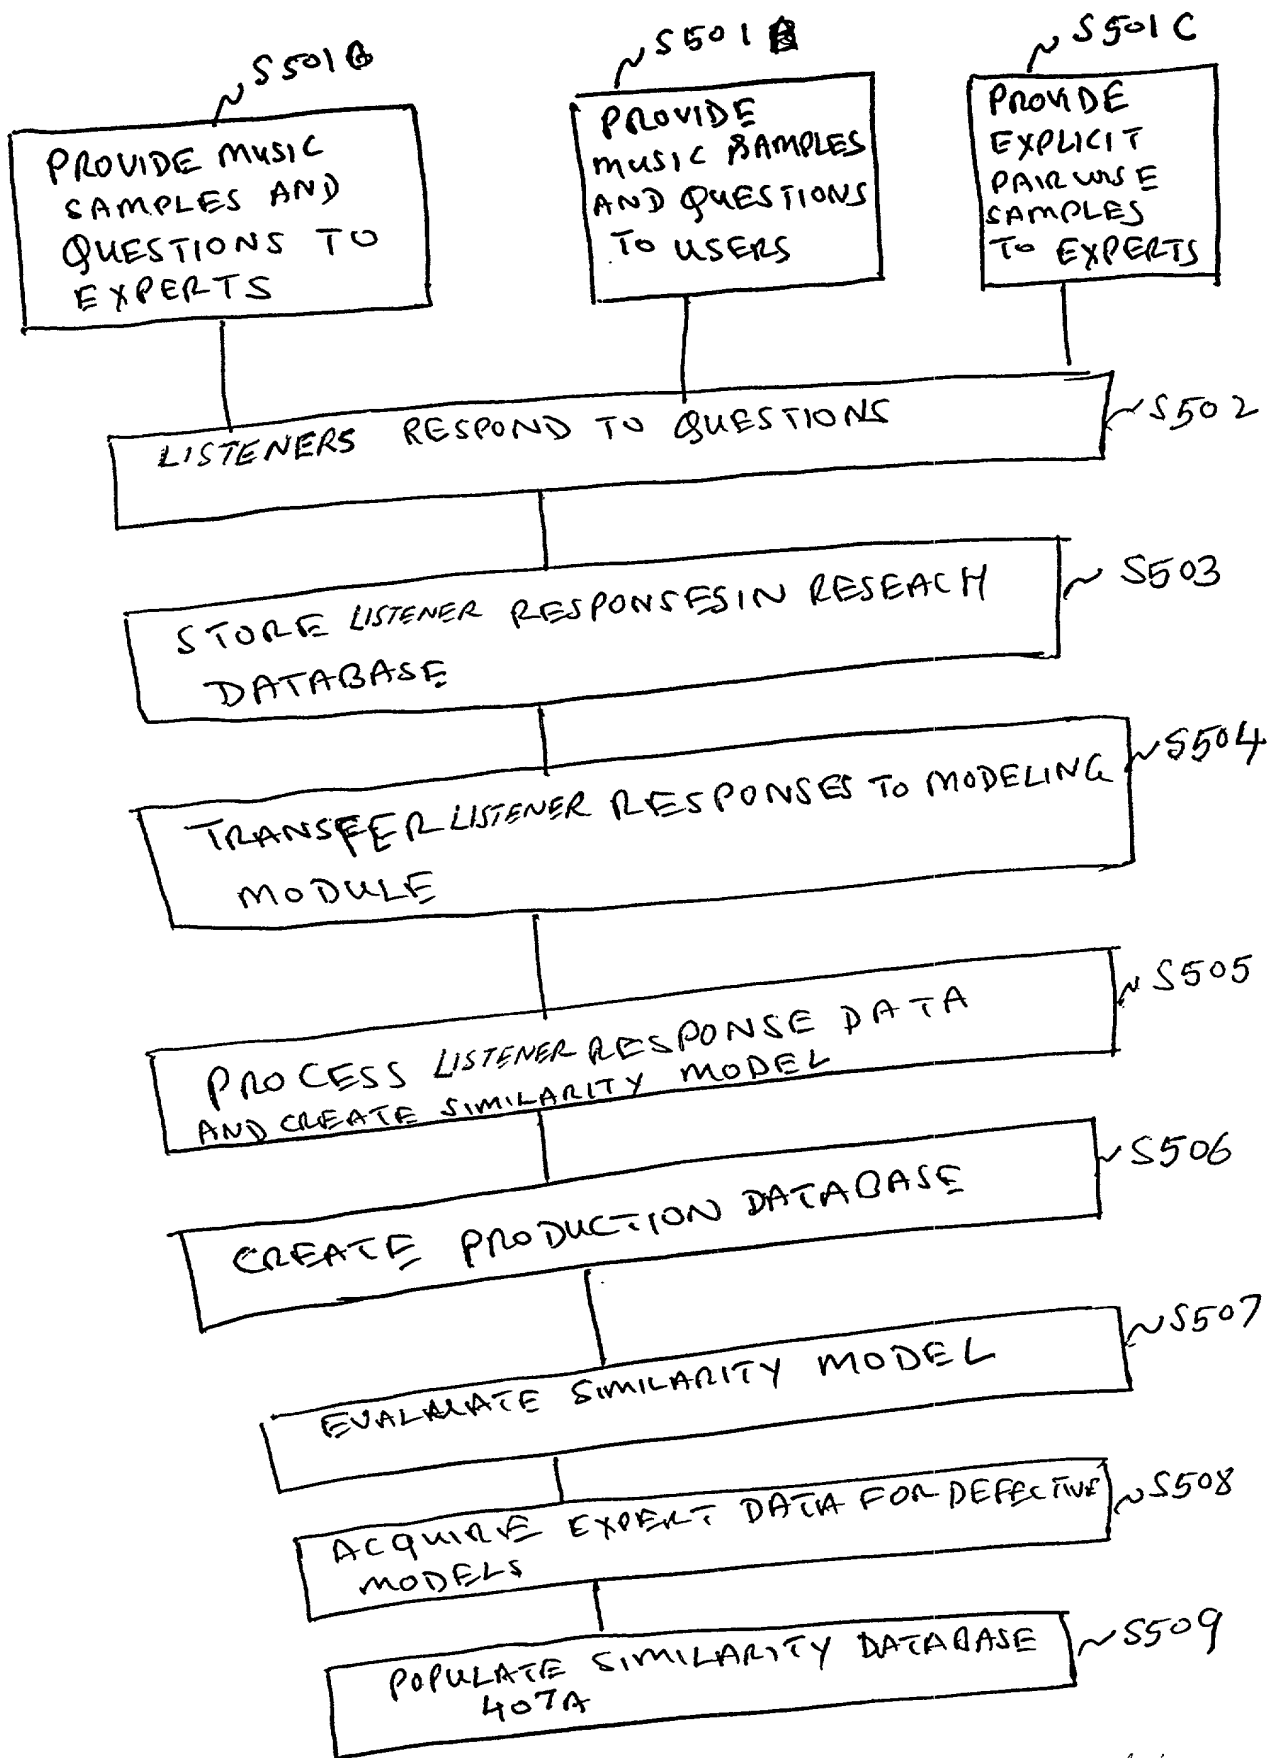 S501
PROVIDE MUSIC
SAMPLES AND
QUESTIONS TO
EXPERTS
S501B
PROVIDE
MUSIC SAMPLES
AND QUESTIONS
TO USERS
S501C
PROVIDE
EXPLICIT
PAIRWISE
SAMPLES
TO EXPERTS
LISTENERS RESPOND TO QUESTIONS
S502
STORE LISTENER RESPONSES IN RESEACH
DATABASE
S503
TRANSFER LISTENER RESPONSES TO MODELING
MODULE
S504
PROCESS LISTENER RESPONSE DATA
AND CREATE SIMILARITY MODEL
S505
CREATE PRODUCTION DATABASE
S506
EVALUATE SIMILARITY MODEL
S507
ACQUIRE EXPERT DATA FOR DEFECTIVE
MODELS
S508
POPULATE SIMILARITY DATABASE
407A
S509